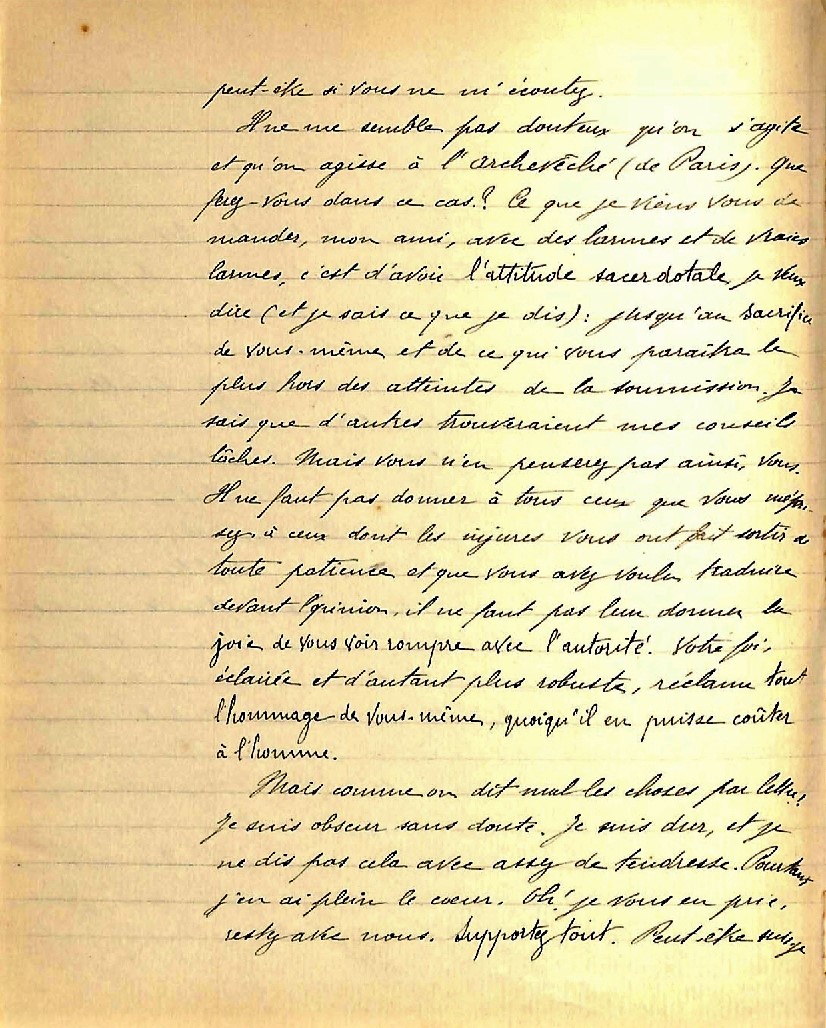 peut-être si vous ne m'écoutez.
Il ne me semble pas douteux qu'on s'agite
et qu'on agisse à l'archevêché (de Paris). Que
ferez-vous dans ce cas? Ce que je viens vous de
mander, mon ami, avec des larmes et de vraies
larmes, c'est d'avoir l'attitude sacerdotale, je veux
dire (et je sais ce que je dis): jusqu'au sacrifice
de vous-même et de ce qui vous paraîtra le
plus hors des atteintes de la soumission. Je
sais que d'autres trouveraient mes conseils
lâches. Mais vous n'en penserez pas ainsi, vous.
Il ne faut pas donner à tous ceux que vous mépri-
sez, à ceux dont les injures vous ont fait sortir de
toute patience et que vous avez voulu traduire
devant l'opinion, il ne faut pas leur donner la
joie de vous voir rompre avec l'autorité. Votre foi,
éclairée et d'autant plus robuste, réclame tout
l'hommage de vous-même, quoiqu'il en puisse coûter
à l'homme.
Mais comme on dit mal les choses par lettre!
Je suis obscur sans doute. Je suis dur, et je
ne dis pas cela avec assez de tendresse. Pourtant
j'en ai plein le cœur. Oh! je vous en prie,
restez avec nous. Supportez tout. Peut-être suis-je